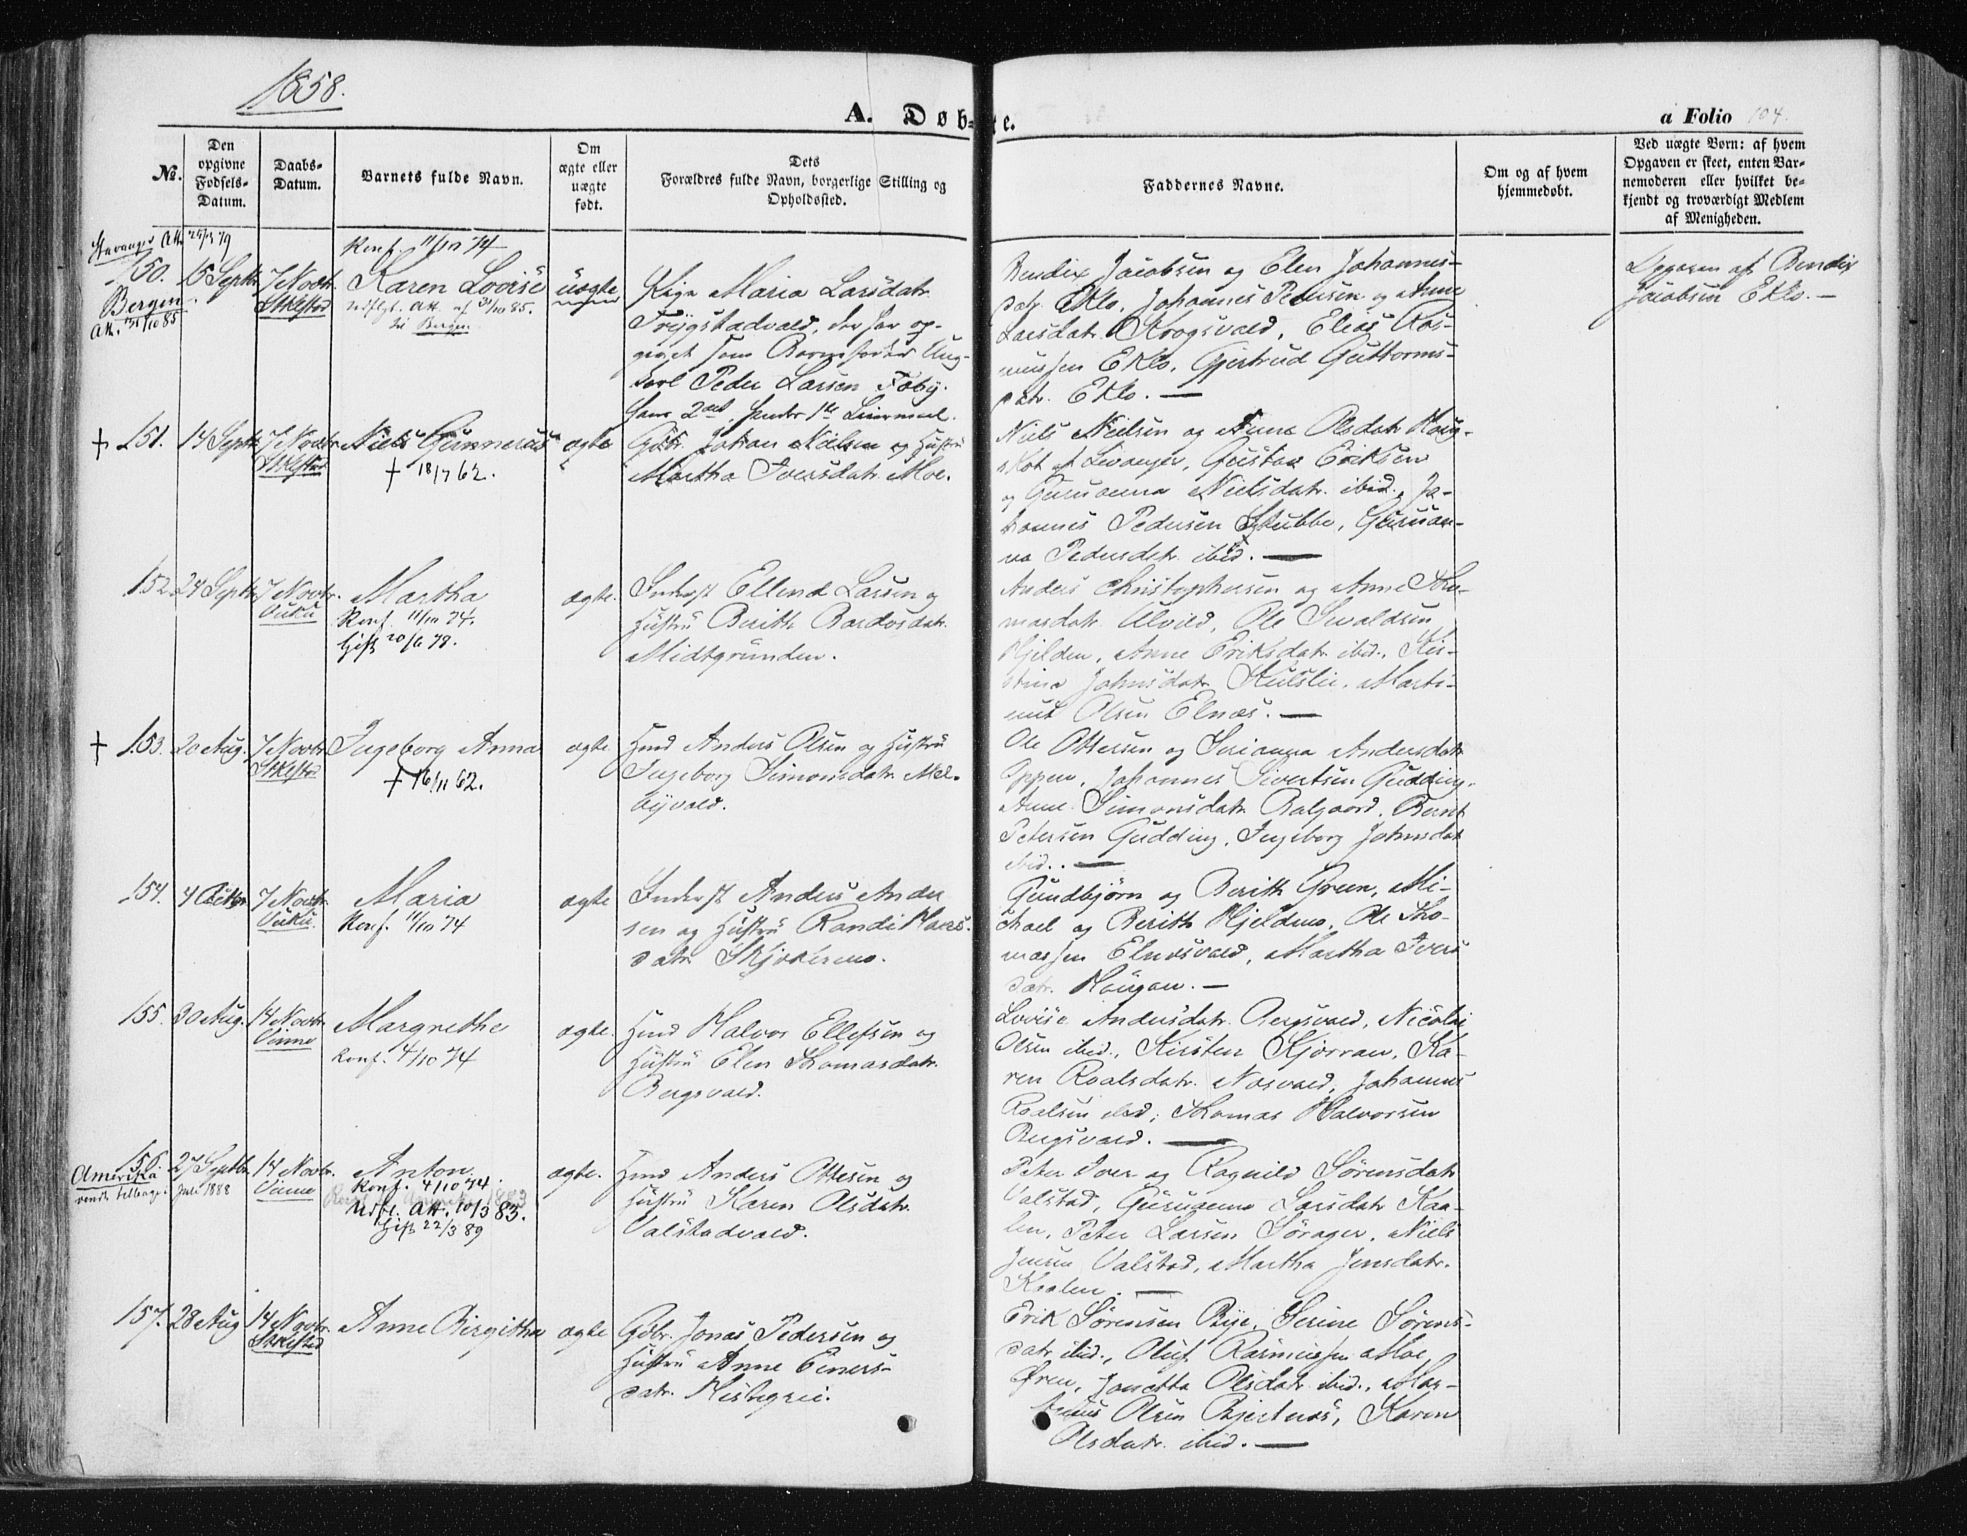 1858.
A. Døb=te.
a Folio 104.
№.
Den opgivne Fødsels-Datum.
Daabs-Datum.
Barnets fulde Navn.
Om ægte eller uægte født.
Dets Forældres fulde Navn, borgerlige Stilling og Opholdssted.
Faddernes Navne.
Om og af hvem hjemmedøbt.
Ved uægte Børn: af hvem Opgaven er skeet, enten Barnemoderen eller hvilket bekjendt og troværdigt Medlem af Menigheden.
Stavanger Att. 25/3 79
150. 15 Septbr 7 Novbr. Stiklestad
Bergen
Att. 31/10 85
Konf. 11/10 74
Karen Lovise
udflyt. Att. af 31/10 85.
til Bergen
uægte
Pige Maria Larsdatr.
Trygstadvald, der har op-
givet som Barnefader Ung-
karl Peder Larsen Faby.
hans 2det, hendes 1ste Leiermaal.
Bendix Jacobsen og Elen Johannes-
datr. Eklo, Johannes Pedersen og Anne
Larsdatr. Krogsvald, Elias Ras-
mussen Eklo, Gjertrud Guttorms-
datr. Eklo. —
Opgaven af Bendix
Jacobsen Eklo. —
† 151. 14 Septbr 7 Novbr Stiklestad
Niels Gunnerius
† 18/7 62.
ægte
Gbr. Johan Nielsen og Hustru
Martha Iversdatr. Moe.
Niels Nielsen og Anne Olsdatr. Haug-
slot af Levanger, Gustav Eriksen
og Guruanna Nielsdatr. ibid., Jo-
hannes Pedersen Stubbe, Guruan-
na Pedersdatr. ibid. —
152. 24 Septbr 7 Novbr. Vuku
Martha
Konf. 11/10 74.
Gift 20/6 79.
ægte.
Inderst Ellend Larsen og
Hustru Berith Bardosdatr.
Midtgrunden.
Anders Christophersen og Anne Tho-
masdatr. Ulvild, Ole Sivaldsen
Hjelden, Anne Eriksdatr. ibid., Kir-
stina Johnsdatr. Kulslie, Marti-
nus Olsen Elnæs. —
† 153. 20 Aug. 7 Novbr Stiklestad
Ingeborg Anna
† 16/11 62.
ægte.
Hmd Anders Olsen og Hustru
Ingeborg Simonsdatr. Mel-
byvald.
Ole Ottersen og Serianna Andersdatr.
Oppem, Johannes Sivertsen Gudding,
Anne Simonsdatr. Balgaard, Bernt
Petersen Gudding, Ingeborg Johnsdatr
ibid. —
154. 4 Octbr 7 Novbr. Vuku.
Maria
Konf. 11/10 74
ægte
Inderst Anders Ander
sen og Hustru Randi Haars-
datr. Skjækermo.
Gundbjørn og Berith Green, Mi-
chael og Berith Hjeldmo, Ole Tho-
massen Elnæsvald, Martha Ivers
datr. Haugan. —
155. 30 Aug. 14 Novbr. Vinne
Margrethe
Konf. 4/10 74
ægte.
Hmd Halvor Ellefsen og
Hustru Elen Thomasdatr.
Bergsvald.
Lovise Andersdatr. Bergsvald, Nicolai
Olsen ibid., Kirsten Kjørran, Ka-
ren Roalsdatr. Næsvald, Johannes
Roalsen ibid., Thomas Halvorsen
Bergsvald. —
156. 27 Septbr. 14 Novbr. Vinne
Amerika
vendt tilbage i Juli 1888
Anton.
Konf. 4/10 74.
Udfl. Att. 10/3 83.
Gift 22/3 89
ægte.
Hmd Anders Ottesen og
Hustru Karen Olsdatr.
Valstadvald.
Peter Iver og Ragnild Sørensdatr.
Valstad, Guruanna Larsdatr. Kaa-
len, Peter Larsen Sørager, Niels
Jensen Valstad, Martha Jensdatr.
Kaalen. —
157. 28 Aug 14 Novbr. Stiklestad
Anne Birgitha
ægte
Gdbr. Jonas Pedersen og
Hustru Anne Einers-
datr. Heslegrei.
Erik Sørensen Bye, Serine Sørens-
datr. ibid., Oluf Rasmussen Moe
Øren, Jonetta Olsdatr. ibid., Mar-
tinus Olsen Bjertnæs, Karen
Olsdatr. ibid. —